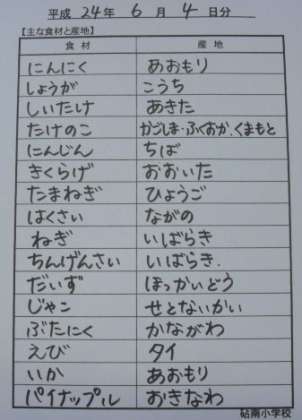 平成 24年 6月 4日分
【主な食材と産地】
食材 産地
にんにく あおもり
しょうが こうち
しいたけ あきた
たけのこ かごしま・ふくおか、くまもと
にんじん ちば
きくらげ おおいた
たまねぎ ひょうご
はくさい ながの
ねぎ いばらき
ちんげんさい いばらき.
だいず ほっかいどう
じゃこ せとないかい
ぶたにく かながわ
えび タイ
いか あおもり
パイナップル おきなわ
砧南小学校